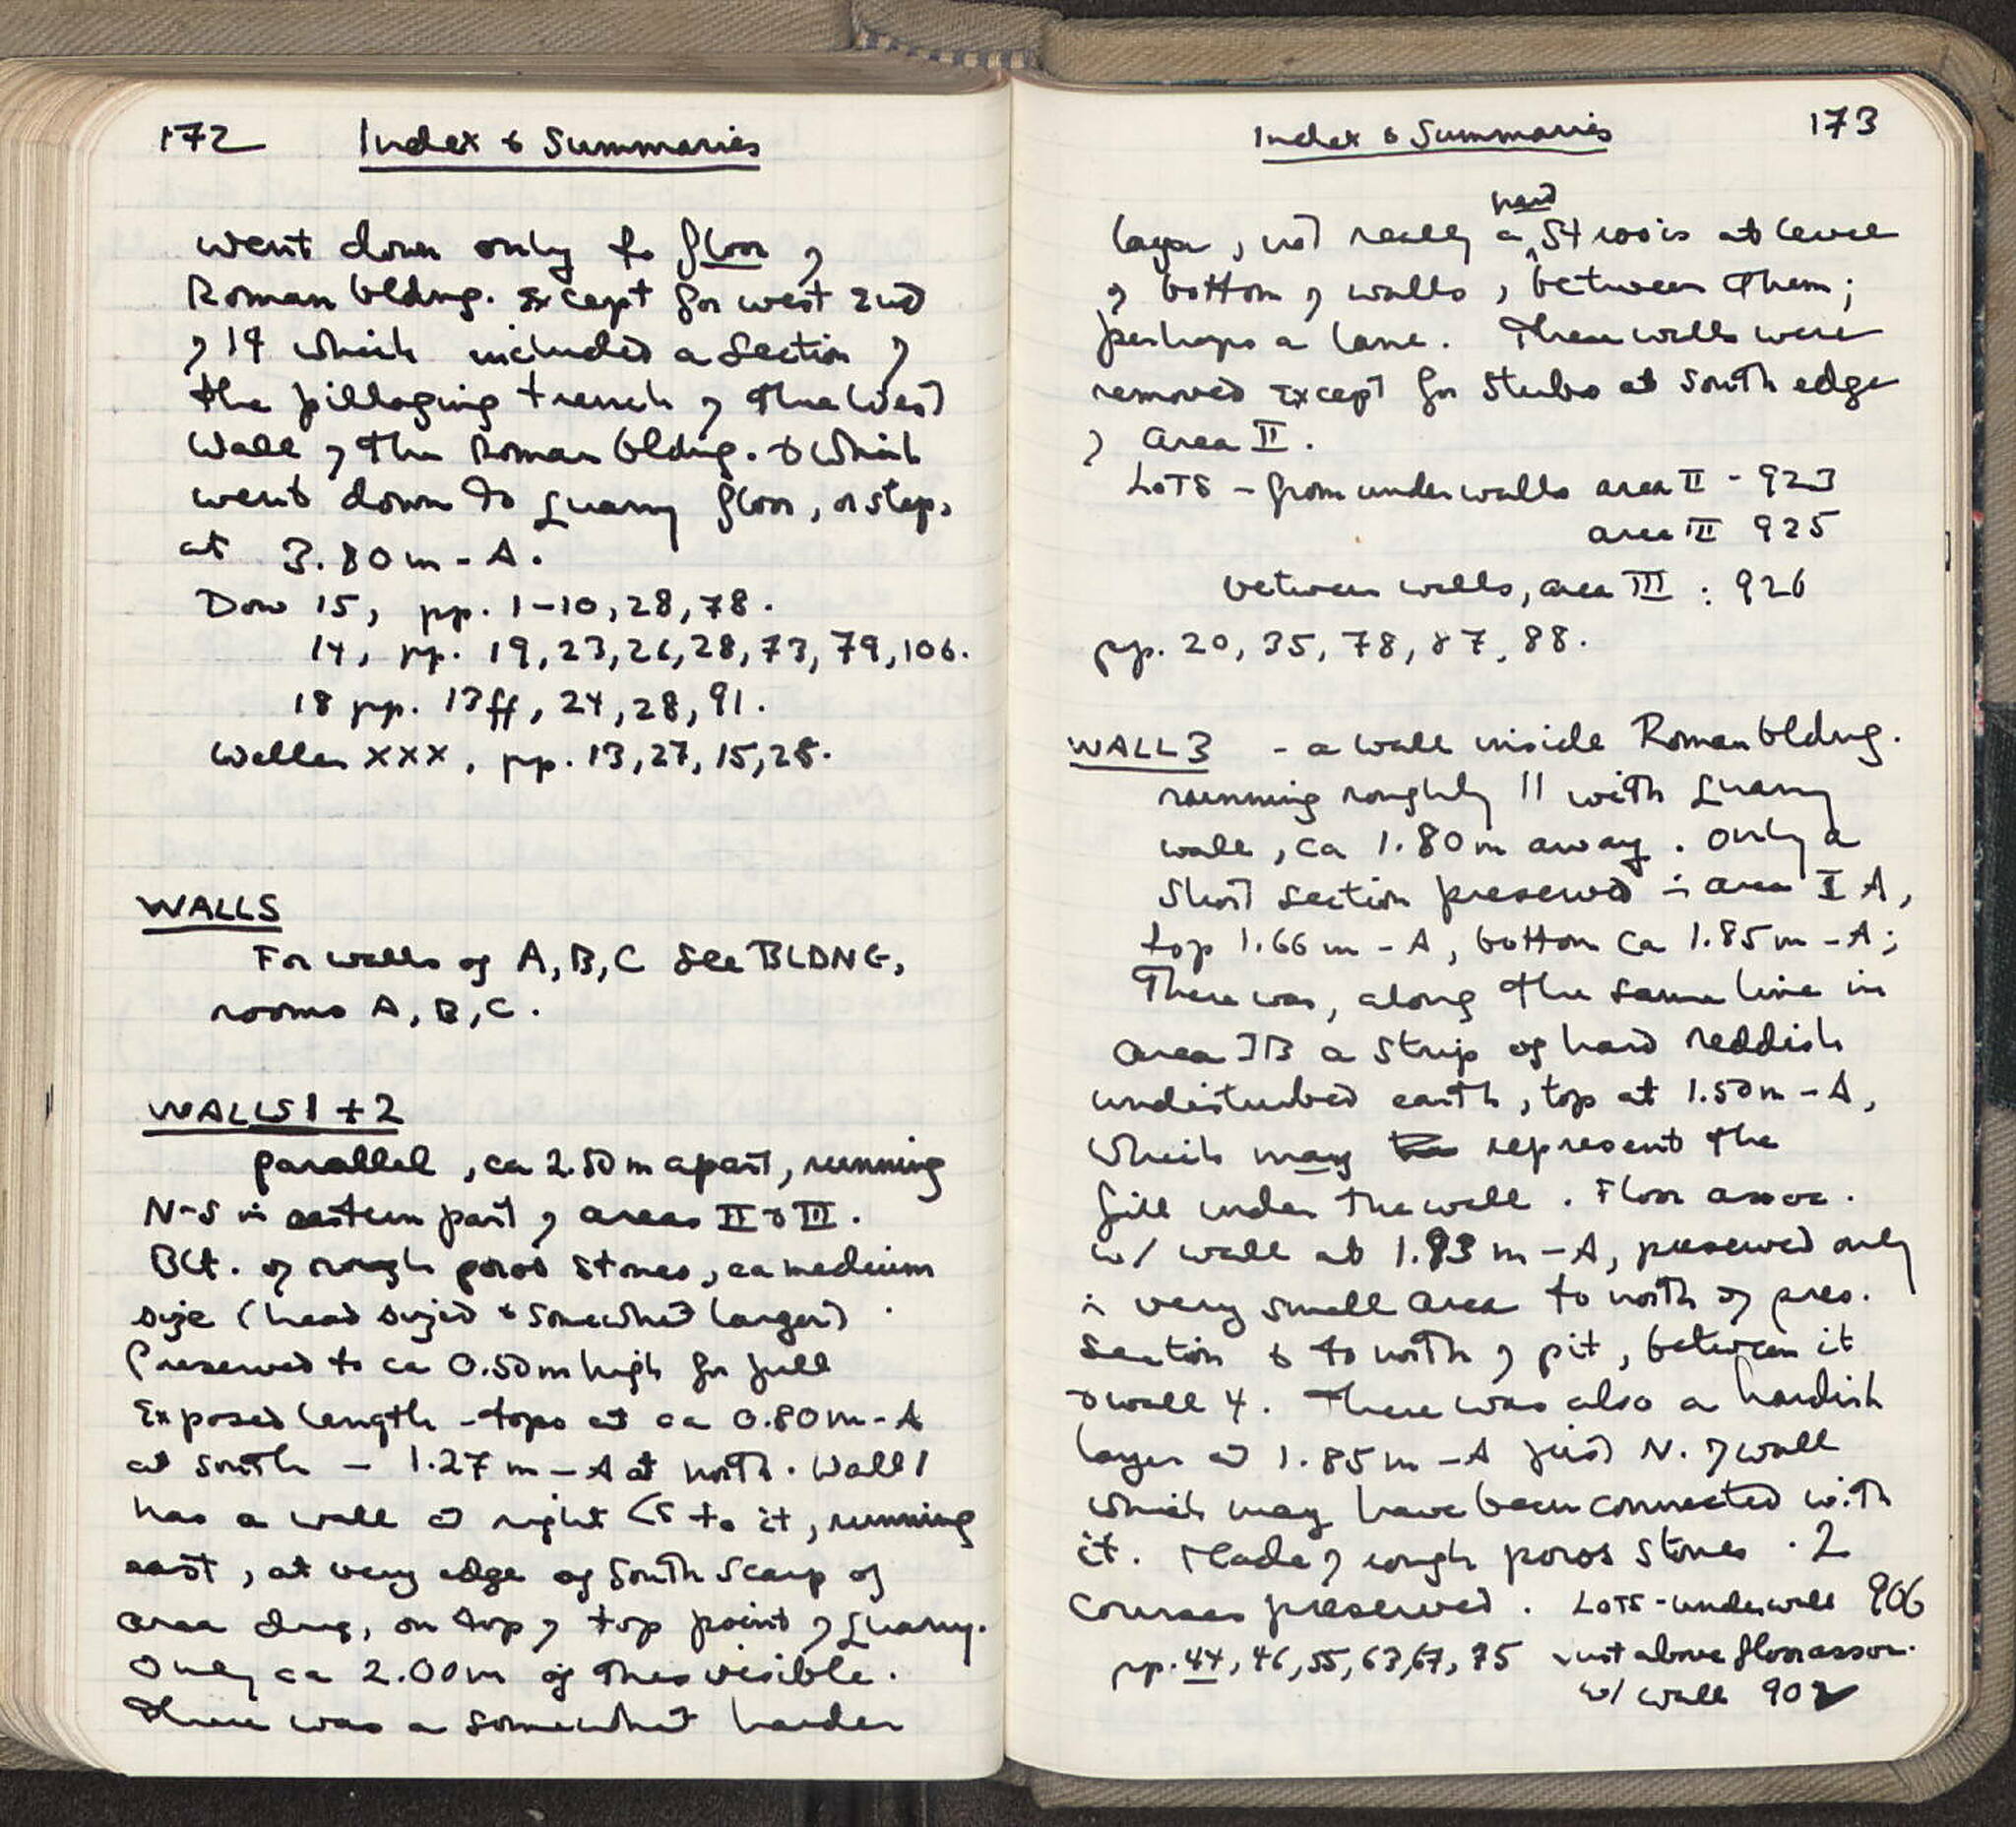 172 Index & Summaries
went down only to floor of
Roman bldng. Except for west end
of 19 which included a section of
the pillaging trench of the West
Wall of the Roman bldng. & which
went down to quarry floor, or step,
at 3.80 m - A.
Dow 15, pp. 1-10, 28, 78.
14, pp. 19, 23, 26, 28, 73, 79, 106.
18 pp. 13ff, 24, 28, 91.
Weller XXX, pp. 13, 27, 15, 28.
WALLS
For walls of A, B, C see BLDNG,
rooms A, B, C.
WALLS 1 + 2
parallel, ca 2.50 m apart, running
N-S in eastern part of areas II & III.
Blt. of rough poros stones, ca medium
size (head sized & somewhat larger)
Preserved to ca 0.50 m high for full
Exposed length - tops at ca 0.80 m - A
at south - 1.27 m - A at north. Wall 1
has a wall at right <s to it, running
east, at very edge of South Scarp of
area dug, on top of top point of quarry.
Only ca 2.00 m of this visible.
There was a somewhat harder
Index & Summaries 173
hard
layer, not really a strois at level
of bottom of walls, between them;
perhaps a lane. These walls were
removed except for stubs at south edge
of area II.
LOTS - from under walls area II - 923
area III 925
between walls, area III : 926
pp. 20, 35, 78, 87, 88.
WALL 3 - a wall inside Roman bldng.
running roughly || with quarry
wall, ca 1.80 m away. Only a
short section preserved in area I A,
top 1.66 m - A, bottom ca 1.85 m - A;
There was, along the same line in
area IB a strip of hard reddish
undisturbed earth, top at 1.50 m - A,
which may represent the
fill under the wall. Floor assoc.
w/ wall at 1.93 m - A, preserved only
in very small area to north of pres.
section & to north of pit, between it
& wall 4. There was also a hardish
layer at 1.85 m - A just N. of wall
which may have been connected with
it. Made of rough poros stones. 2
courses preserved. LOTS - under wall 906
pp. 44, 46, 55, 63, 67, 75 just above floor assoc.
w/ wall 902